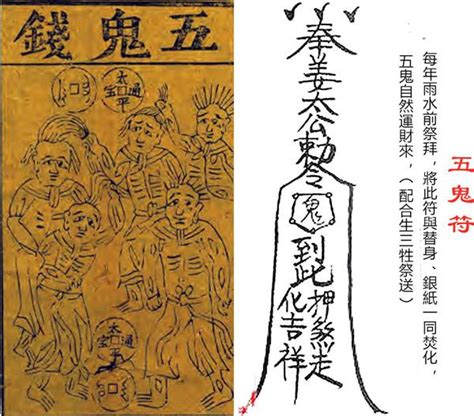 五鬼錢
太平通宝
太平通宝
奉姜太公勅令
鬼
到此
押煞走
化吉祥
五鬼符
每年雨水前祭拜，將此符與替身、銀紙一同焚化，
五鬼自然運財來，（配合生三牲祭送）